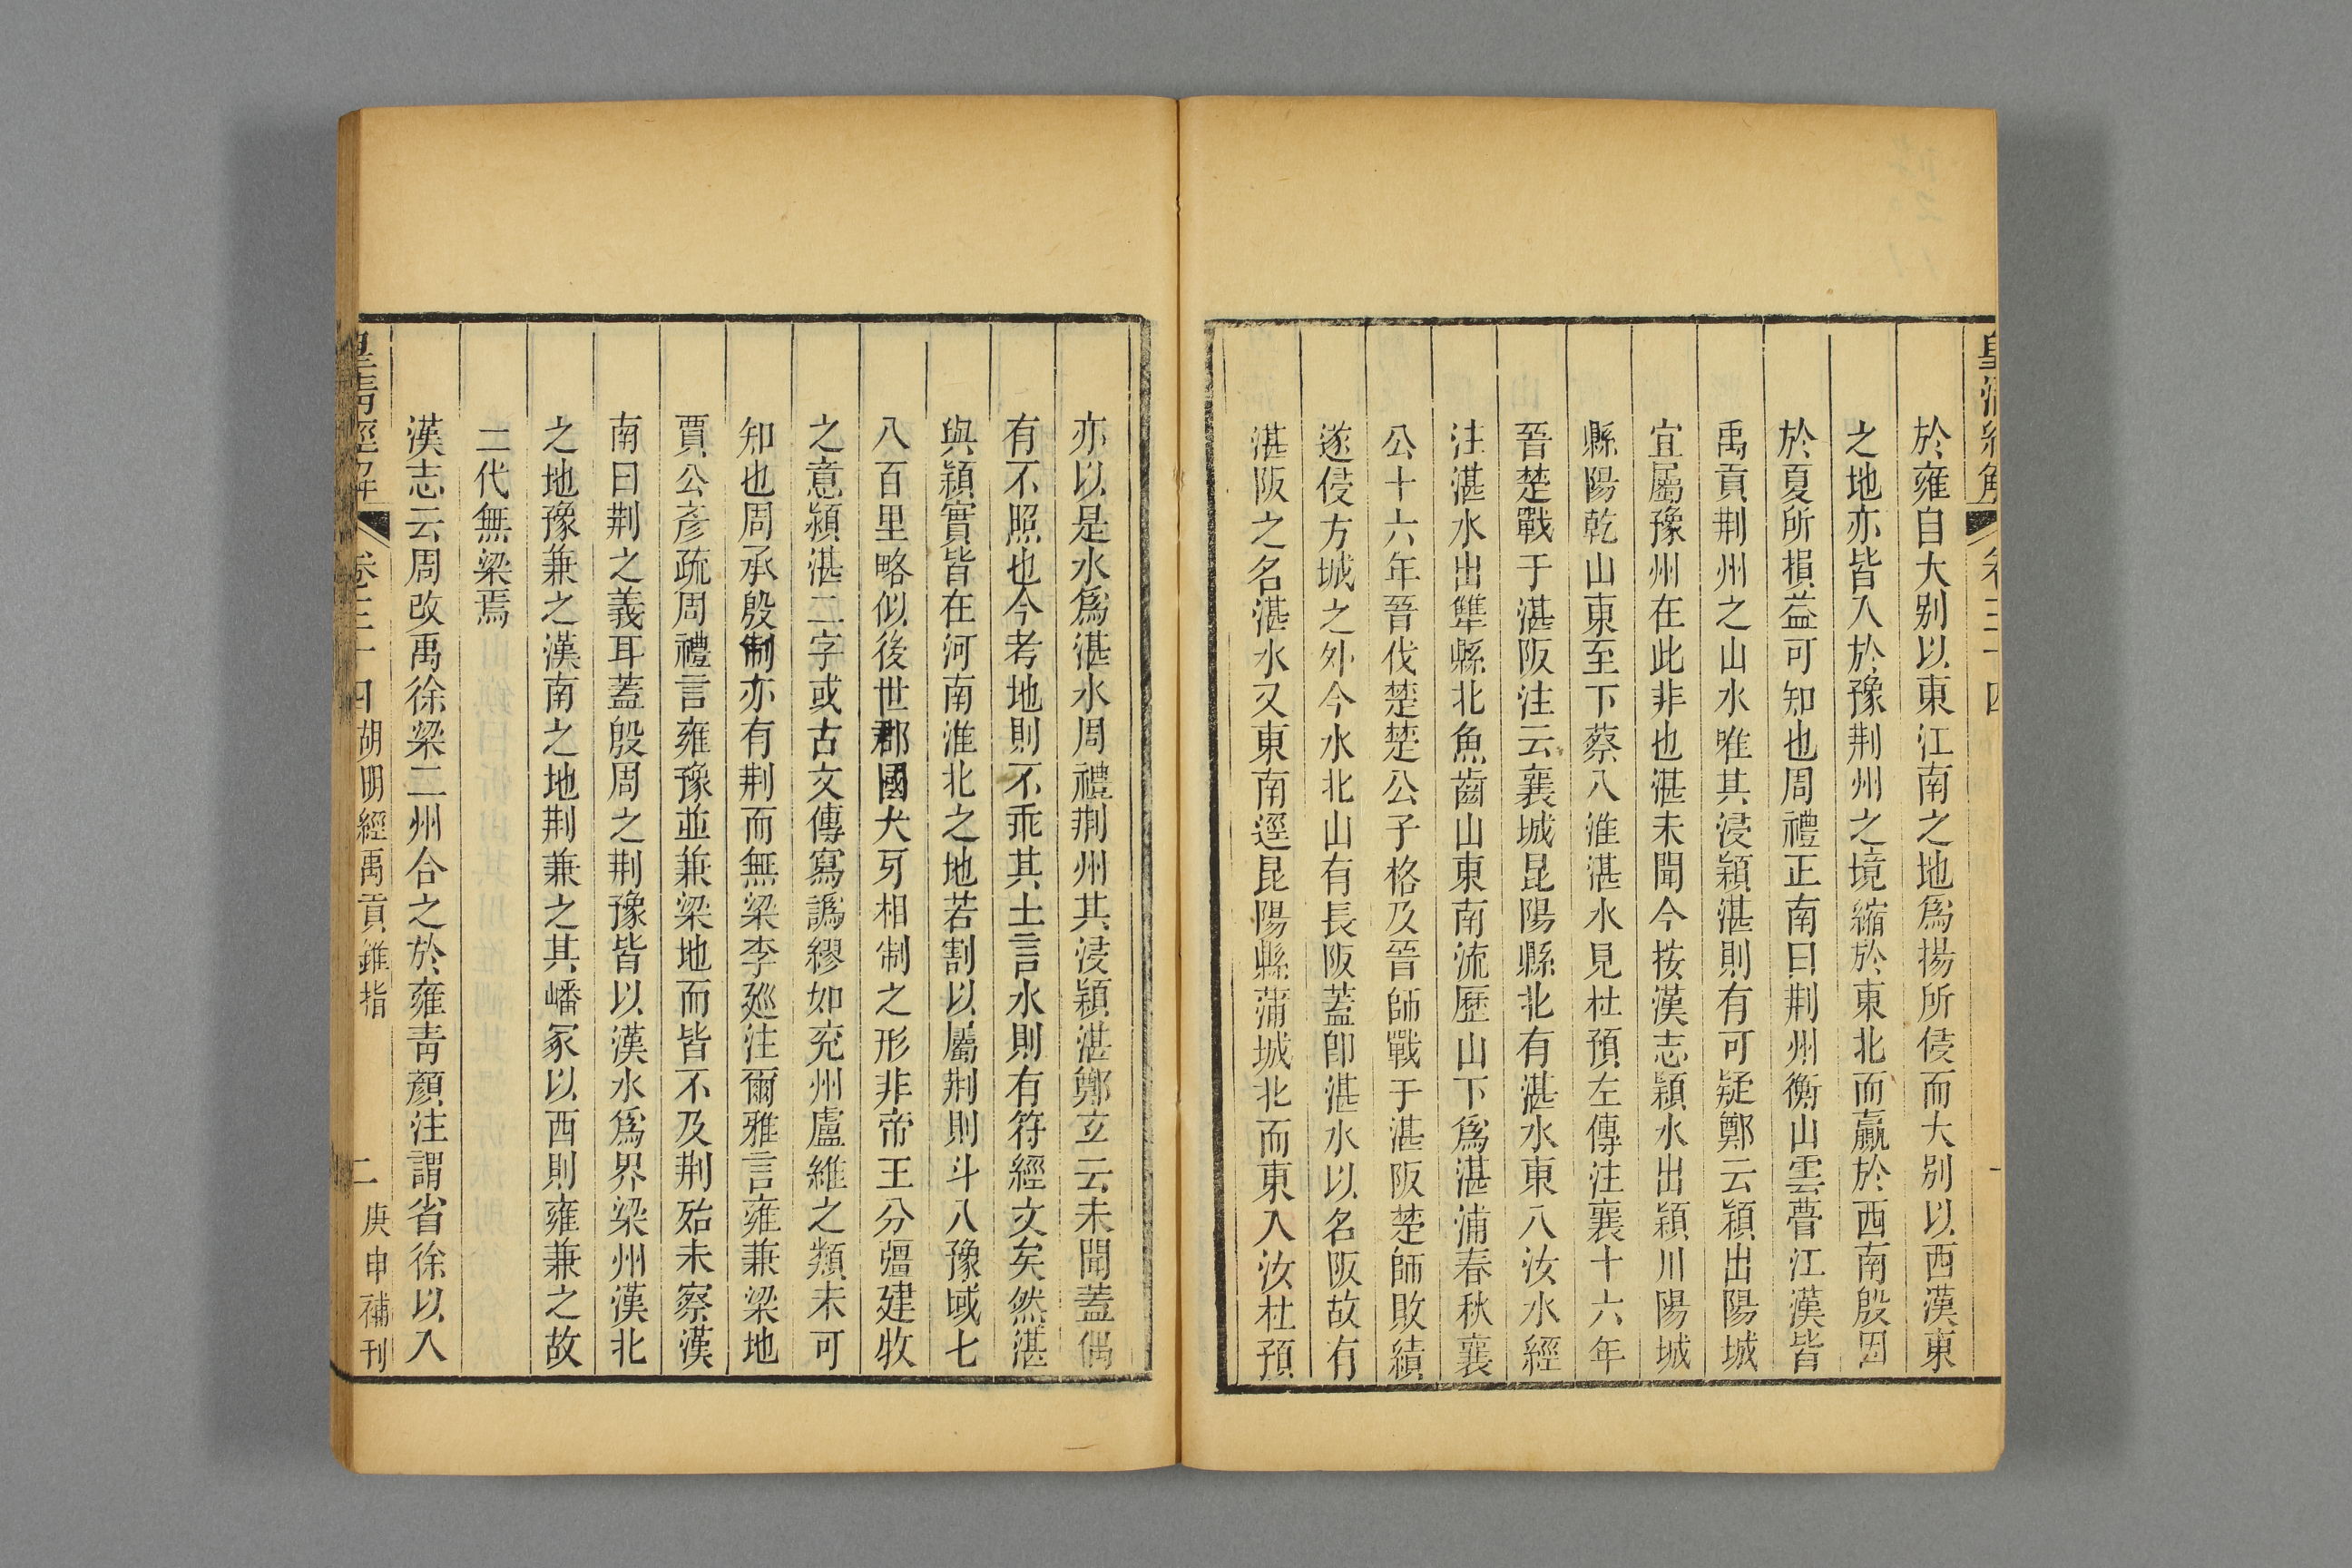 皇清經解
卷三十四
一
於雍自大别以東江南之地爲揚所侵而大别以西漢東
之地亦皆入於豫荆州之境縮於東北而贏於西南殷因
於夏所損益可知也周禮正南曰荆州衡山雲瞢江漢皆
禹貢荆州之山水唯其浸潁湛則有可疑鄭云潁出陽城
宜屬豫州在此非也湛未聞今按漢志潁水出潁川陽城
縣陽乾山東至下蔡入淮湛水見杜預左傳注襄十六年
晉楚戰于湛阪注云襄城昆陽縣北有湛水東入汝水經
注湛水出犨縣北魚齒山東南流歷山下爲湛浦春秋襄
公十六年晉伐楚楚公子格及晉師戰于湛阪楚師敗績
遂侵方城之外今水北山有長阪蓋卽湛水以名阪故有
湛阪之名湛水又東南逕昆陽縣蒲城北而東入汝杜預
亦以是水爲湛水周禮荆州其浸潁湛鄭玄云未聞蓋偶
有不照也今考地則不乖其土言水則有符經文矣然湛
與潁實皆在河南淮北之地若割以屬荆則斗入豫域七
八百里略似後世郡國犬牙相制之形非帝王分疆建牧
之意潁湛二字或古文傳寫譌繆如兖州盧維之類未可
知也周承殷制亦有荆而無梁李廵注爾雅言雍兼梁地
賈公彥疏周禮言雍豫並兼梁地而皆不及荆殆未察漢
南曰荆之義耳蓋殷周之荆豫皆以漢水爲界梁州漢北
之地豫兼之漢南之地荆兼之其嶓冢以西則雍兼之故
二代無梁焉
漢志云周改禹徐梁二州合之於雍青顏注謂省徐以入
皇清經解
卷三十四
胡明經禹貢錐指
二
庚申補刊